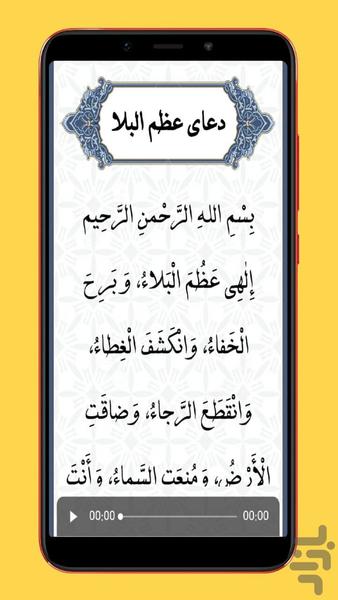 دعای عظم البلا
بِسْمِ اللهِ الرَّحْمنِ الرَّحِیمِ
إِلٰهِی عَظُمَ الْبَلاءُ، وَ بَرِحَ
الْخَفاءُ، وَانْکَشَفَ الْغِطاءُ،
وَانْقَطَعَ الرَّجاءُ، وَضاقَتِ
الْأَرْضُ، وَ مُنِعَتِ السَّماءُ، وَ أَنْتَ
00:00 00:00
بازار